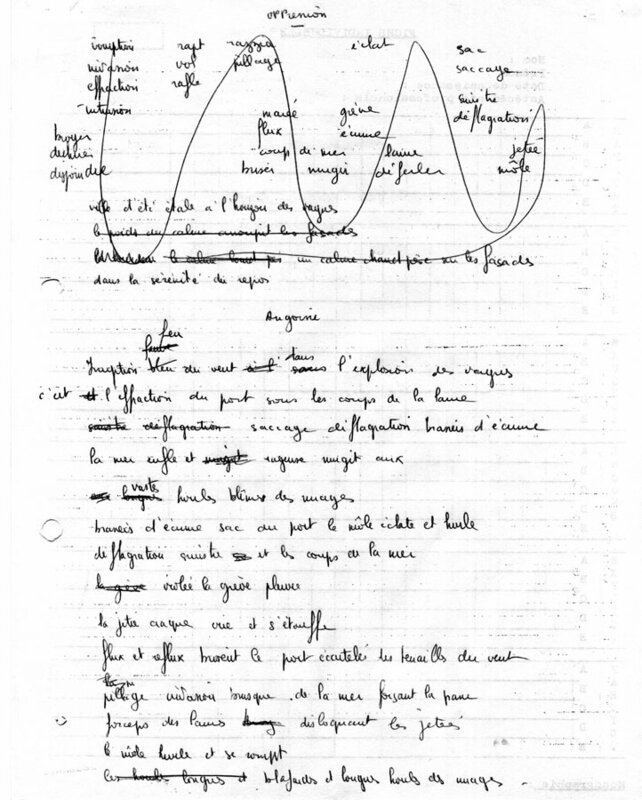 oppression
irruption rapt razzia éclat sac
invasion vol pillage saccage
effraction rafle sinistre
intrusion marée grève déflagration
broyer flux écume
déchirer coups de mer lame jetée
disjoindre briser mugir déferler môle
ville d'été étale à l'horizon des vagues
le poids du calme assoupit les façades
le calme un calme chaud pèse sur les façades
dans la sérénité du repos
Angoisse
feu
Irruption bleu du vent dans l'explosion des vagues
c'est l'effraction du port sous les coups de la lame
sinistre déflagration saccage déflagration d'écume
la mer rafle et mugit rageuse mugit aux
longues vastes houles blêmes des nuages
d'écume sac du port le môle éclate et hurle
déflagration sinistre et les coups de la mer
la grève violée la grève pleure
la jetée craque crie et s'étouffe
flux et reflux broient le port écartelé les tenailles du vent
pillage invasion brusque de la mer forçant la
forceps des lames disloquant les jetées
le môle hurle et se rompt
les houles longues et blafardes et longues houles des nuages